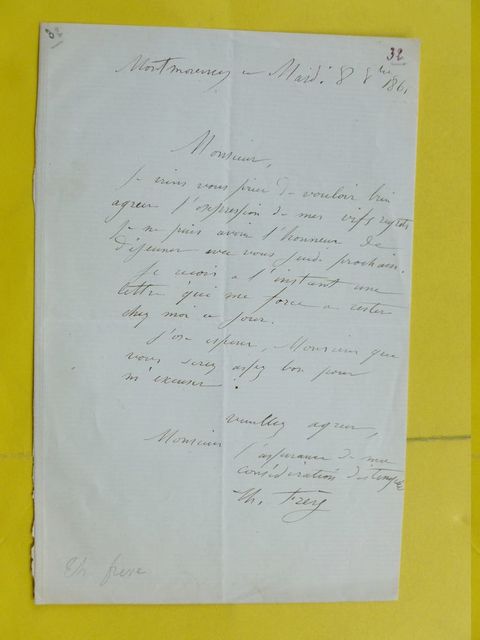 32
32
Montmorency ce Mardi 8 8bre 1861
Monsieur,
Je viens vous prier de vouloir bien
agréer l'expression de mes vifs regrets
Je ne puis avoir l'honneur de
déjeuner avec vous jeudi prochain.
Je reçois a l'instant une
lettre qui me force a rester
chez moi ce jour.
J'ose espérer, Monsieur que
vous serez assez bon pour
m'excuser !
veuillez agréer,
Monsieur
l'assurance de ma
considération distinguée
Th. Frère
Th frere